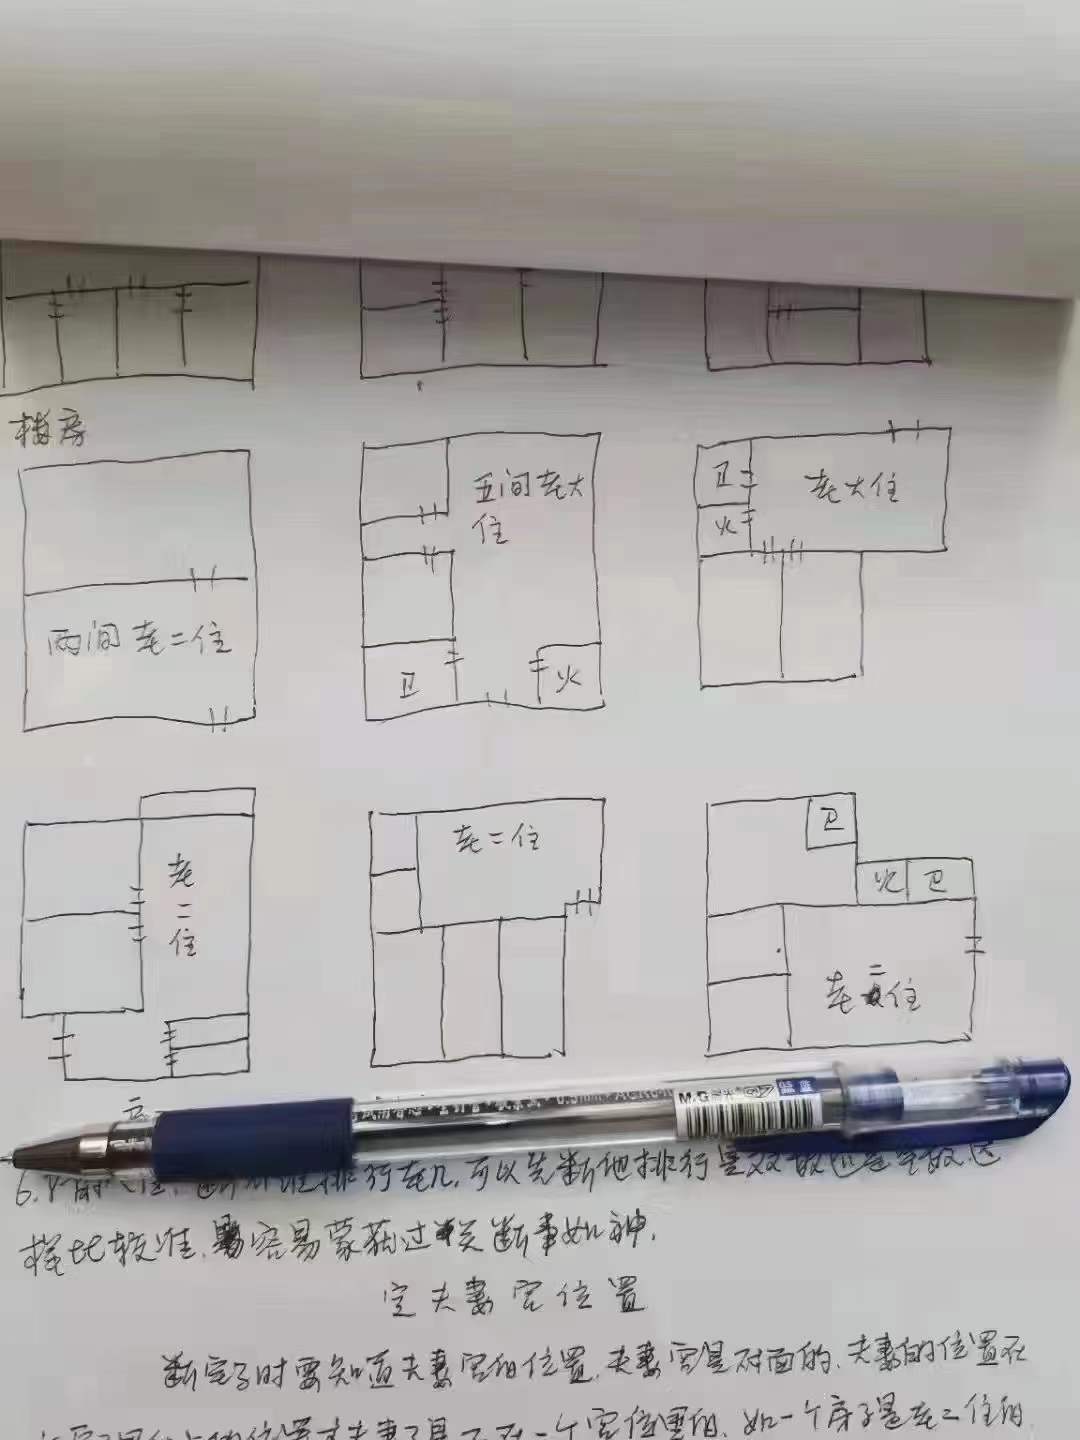 楼房
两间老二住
五间老大
住
卫
火
卫
火
老大住
老
二
住
老二住
卫
火 卫
老二住
M&G
0.5mm
6.
排行老几,可以先断他排行是双数还是单数,这
样比较准,容易蒙混过关断事如神.
定夫妻宫位置
断宅子时要知道夫妻宫的位置,夫妻宫是对面的,夫妻的位置在
一个宫位里的,如一个房子是老二住的,